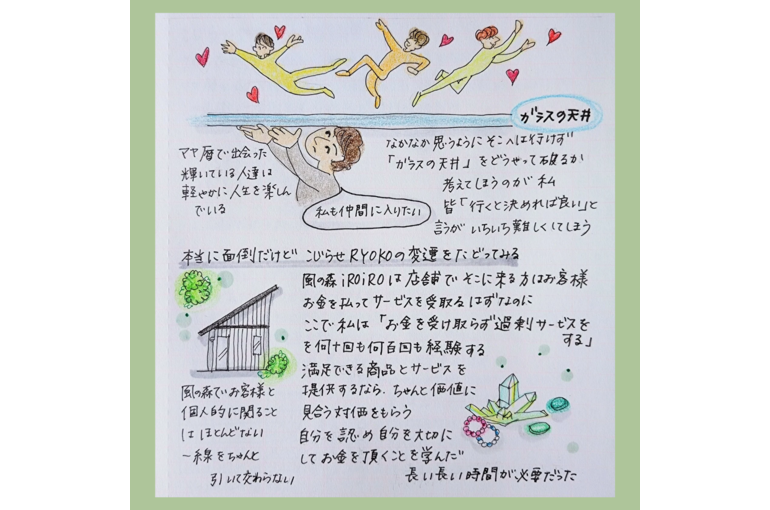 ガラスの天井
マヤ暦で出会った
輝いている人達は
軽やかに人生を楽しん
でいる
私も仲間に入りたい
なかなか思うようにそこへは行けず
「ガラスの天井」をどうやって破るか
考えてしまうのが私
皆「行くと決めれば良い」と
言うがいちいち難しくしてしまう
本当に面倒だけど こじらせRYOKOの変遷をたどってみる
風の森iROiROは店舗でそこに来る方はお客様
お金を払ってサービスを受取るはずなのに
ここで私は「お金を受け取らず過剰サービスを
する」
を何十回も何百回も経験する
満足できる商品とサービスを
提供するなら、ちゃんと価値に
見合う対価をもらう
自分を認め自分を大切に
してお金を頂くことを学んだ
長い長い時間が必要だった
風の森でお客様と
個人的に関ること
はほとんどない
一線をちゃんと
引いて交わらない